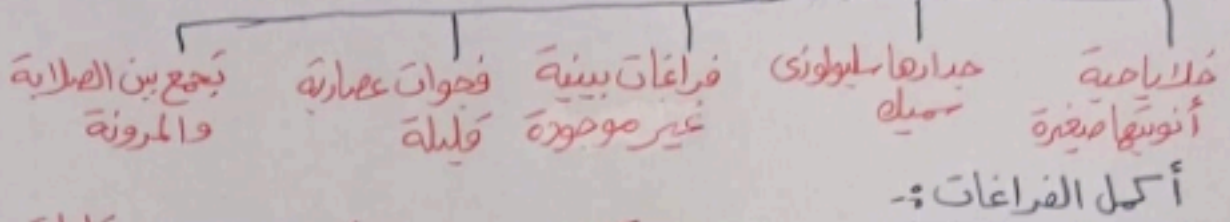 خلايا حية أنويتها صغيرة
جدارها سليولوزى سميك
فراغات بينية غير موجودة
فجوات عصارية قليلة
تجمع بين الصلابة والمرونة
أكمل الفراغات :-